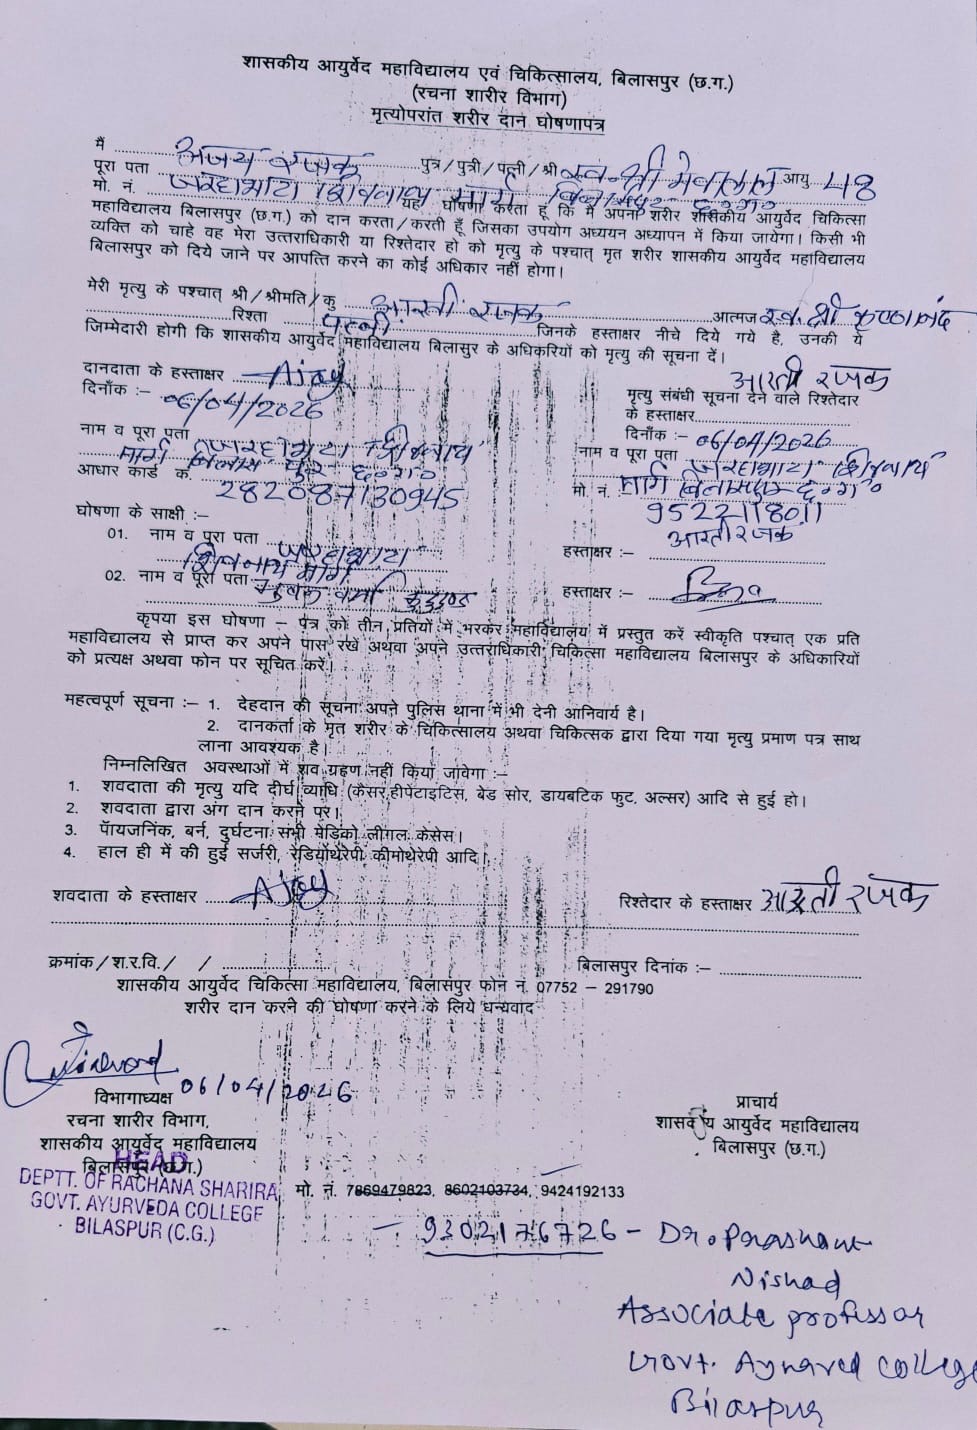 शासकीय आयुर्वेद महाविद्यालय एवं चिकित्सालय, बिलासपुर (छ.ग.)
(रचना शारीर विभाग)
मृत्योपरांत शरीर दान घोषणापत्र
मैं अजय रजक पुत्र/पुत्री/पत्नी/श्री स्व. श्री मेवालाल आयु 48
पूरा पता जरहाभाटा शिवनाथ मार्ग बिलासपुर छ०ग०
मो. नं. यह घोषणा करता हूं कि मैं अपना शरीर शासकीय आयुर्वेद चिकित्सा
महाविद्यालय बिलासपुर (छ.ग.) को दान करता/करती हूँ जिसका उपयोग अध्ययन अध्यापन में किया जायेगा। किसी भी
व्यक्ति को चाहे वह मेरा उत्तराधिकारी या रिश्तेदार हो को मृत्यु के पश्चात् मृत शरीर शासकीय आयुर्वेद महाविद्यालय
बिलासपुर को दिये जाने पर आपत्ति करने का कोई अधिकार नहीं होगा।
मेरी मृत्यु के पश्चात् श्री/श्रीमति/कु आरती रजक आत्मज स्व. श्री
रिश्ता पत्नी जिनके हस्ताक्षर नीचे दिये गये है, उनकी ये
जिम्मेदारी होगी कि शासकीय आयुर्वेद महाविद्यालय बिलासुर के अधिकरियों को मृत्यु की सूचना दें।
दानदाता के हस्ताक्षर Ajay
दिनाँक :- 06/04/2026
आरती रजक
मृत्यु संबंधी सूचना देने वाले रिश्तेदार
के हस्ताक्षर
दिनाँक :- 06/04/2026
नाम व पूरा पता जरहाभाटा शिवनाथ
मार्ग बिलासपुर छ०ग०
आधार कार्ड क. 282087130945
नाम व पूरा पता जरहाभाटा शिवनाथ
मो. नं. मार्ग बिलासपुर छ०ग०
9522118011
आरती रजक
घोषणा के साक्षी :-
01. नाम व पूरा पता जरहाभाटा
शिवनाथ मार्ग
हस्ताक्षर :-
02. नाम व पूरा पता वर्मा
हस्ताक्षर :-
कृपया इस घोषणा - पत्र को तीन प्रतियों में भरकर महाविद्यालय में प्रस्तुत करें स्वीकृति पश्चात् एक प्रति
महाविद्यालय से प्राप्त कर अपने पास रखें अथवा अपने उत्तराधिकारी चिकित्सा महाविद्यालय बिलासपुर के अधिकारियों
को प्रत्यक्ष अथवा फोन पर सूचित करें।
महत्वपूर्ण सूचना :- 1. देहदान की सूचना अपने पुलिस थाना में भी देनी आनिवार्य है।
2. दानकर्ता के मृत शरीर के चिकित्सालय अथवा चिकित्सक द्वारा दिया गया मृत्यु प्रमाण पत्र साथ
लाना आवश्यक है।
निम्नलिखित अवस्थाओं में शव ग्रहण नहीं किया जावेगा :-
1. शवदाता की मृत्यु यदि दीर्घ व्याधि (कैंसर,हीपेटाइटिस, बेड सोर, डायबटिक फुट, अल्सर) आदि से हुई हो।
2. शवदाता द्वारा अंग दान करने पर।
3. पॅायजनिंक, बर्न, दुर्घटना सभी मेडिको लीगल केसेस।
4. हाल ही में की हुई सर्जरी, रेडियोथेरेपी कीमोथेरेपी आदि।
शवदाता के हस्ताक्षर Ajay
रिश्तेदार के हस्ताक्षर आरती रजक
क्रमांक/श.र.वि./ /
बिलासपुर दिनांक :-
शासकीय आयुर्वेद चिकित्सा महाविद्यालय, बिलासपुर फोन नं. 07752 - 291790
शरीर दान करने की घोषणा करने के लिये धन्यवाद
06/04/2026
विभागाध्यक्ष
रचना शारीर विभाग,
शासकीय आयुर्वेद महाविद्यालय
बिलासपुर (छ.ग.)
प्राचार्य
शासकीय आयुर्वेद महाविद्यालय
बिलासपुर (छ.ग.)
HEAD
DEPTT. OF RACHANA SHARIRA
GOVT. AYURVEDA COLLEGE
BILASPUR (C.G.)
मो. नं. 7869479823, 8602103734, 9424192133
- 9302176726 - Dr. Prashant
Nishad
Associate professor
Govt. Ayurved college
Bilaspur